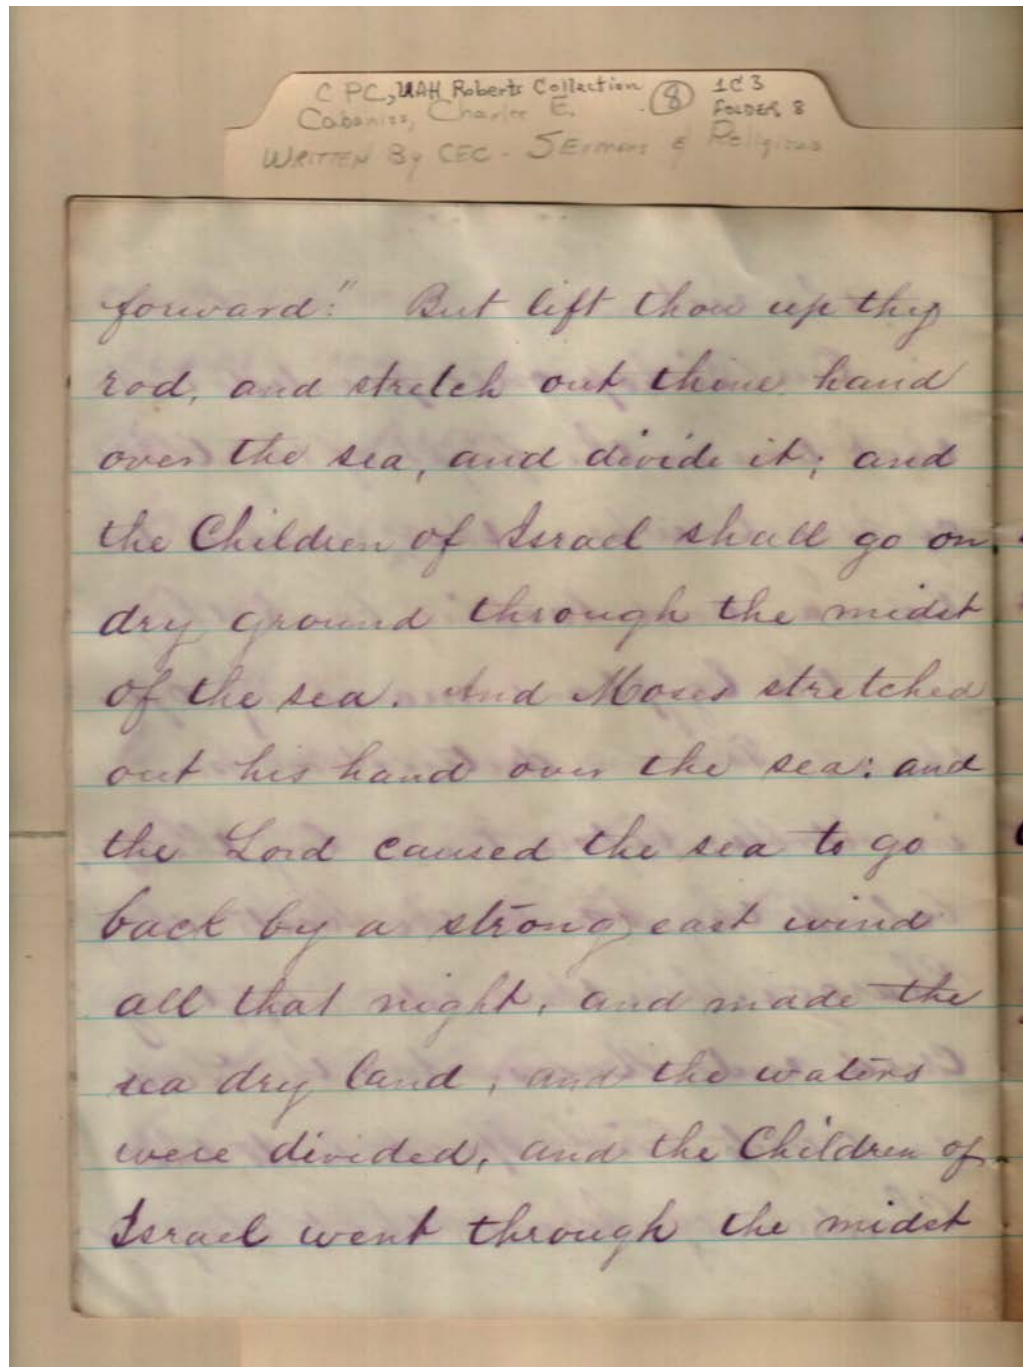 C PC, UAH Roberts Collection (8) 1C3
Cabaniss, Charles E. FOLDER 8
WRITTEN By CEC - SErmons & Religious
forward:" But lift thou up thy
rod, and stretch out thine hand
over the sea, and divide it; and
the Children of Israel shall go on
dry ground through the midst
of the sea. And Moses stretched
out his hand over the sea: and
the Lord caused the sea to go
back by a strong east wind
all that night, and made the
sea dry land, and the waters
were divided, and the Children of
Israel went through the midst